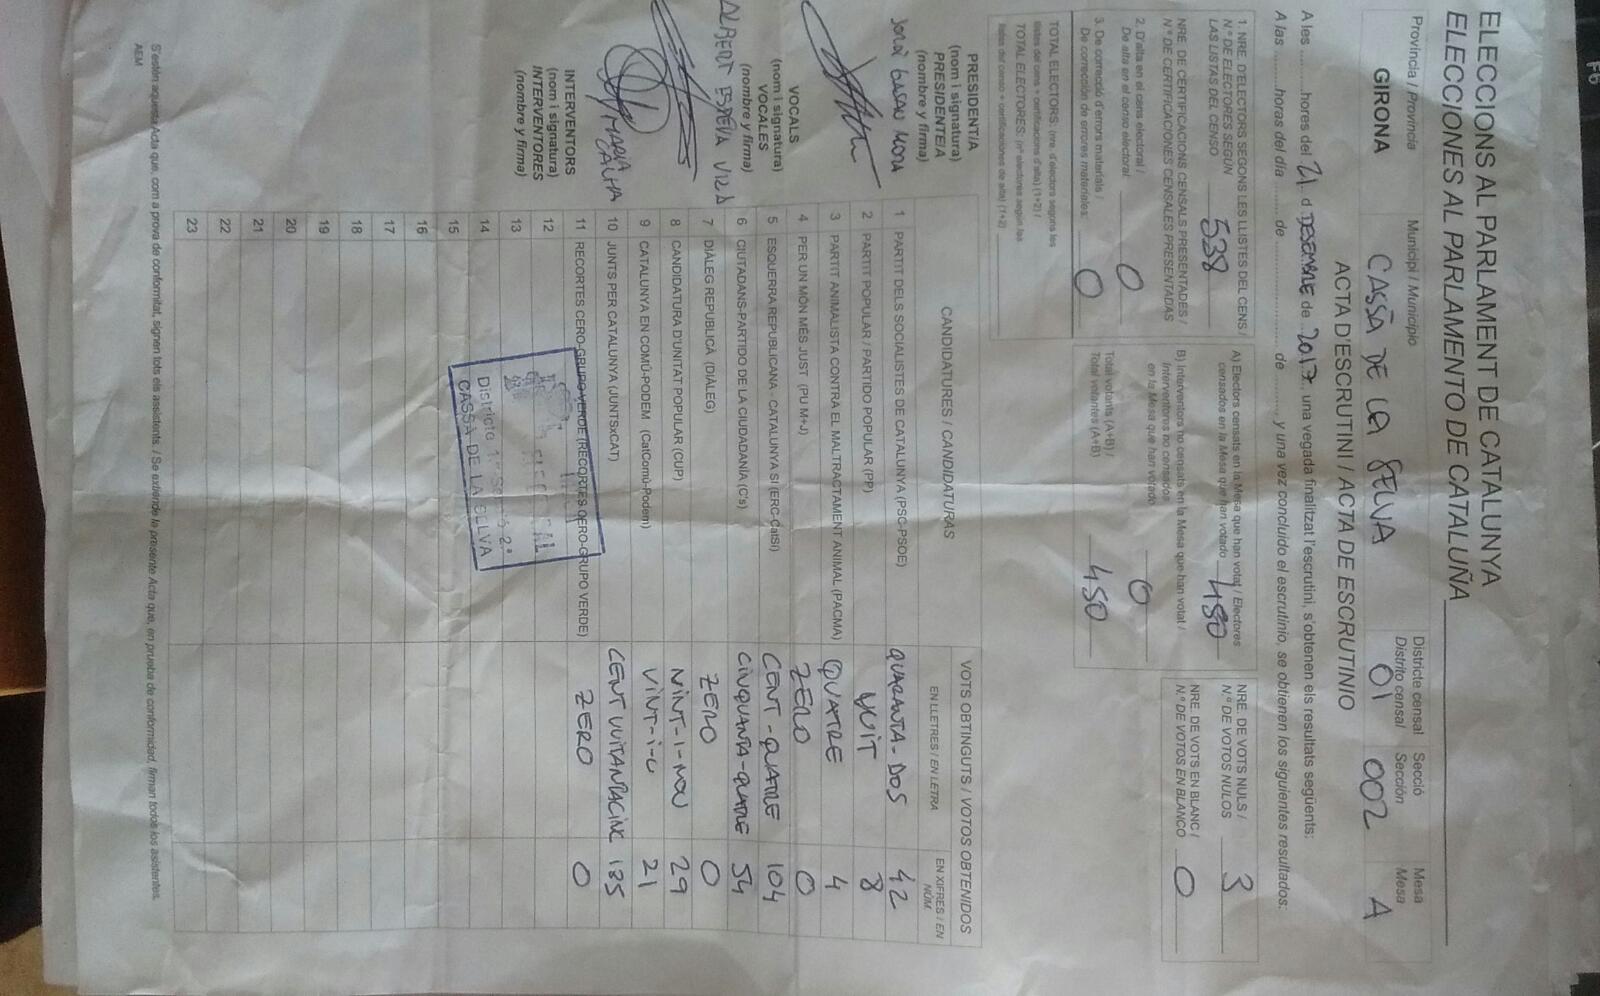 F6
ELECCIONS AL PARLAMENT DE CATALUNYA
ELECCIONES AL PARLAMENTO DE CATALUÑA
Provincia / Provincia
GIRONA
Municipi / Municipio
CASSÀ DE LA SELVA
Districte censal
Distrito censal
01
Secció
Sección
002
Mesa
Mesa
A
ACTA D'ESCRUTINI / ACTA DE ESCRUTINIO
A les ........hores del 21 d DESEMBRE de 2017, una vegada finalitzat l'escrutini, s'obtenen els resultats següents:
A las ........horas del día ........ de ........................ de ........, y una vez concluido el escrutinio, se obtienen los siguientes resultados:
1. NRE. D'ELECTORS SEGONS LES LLISTES DEL CENS /
N.º DE ELECTORES SEGÚN
LAS LISTAS DEL CENSO 538
NRE. DE CERTIFICACIONS CENSALS PRESENTADES /
N.º DE CERTIFICACIONES CENSALES PRESENTADAS
2. D'alta en el cens electoral /
De alta en el censo electoral: 0
3. De correcció d'errors materials /
De corrección de errores materiales: 0
TOTAL ELECTORS: (nre. d'electors segons les
llistes del cens + certificacions d'alta) (1+2) /
TOTAL ELECTORES: (nº electores según las
listas del censo + certificaciones de alta) (1+2)
A) Electors censats en la Mesa que han votat / Electores
censados en la Mesa que han votado 450
B) Interventors no censats en la Mesa que han votat /
Interventores no censados
en la Mesa que han votado 0
Total votants (A+B) /
Total votantes (A+B) 450
NRE. DE VOTS NULS /
N.º DE VOTOS NULOS 3
NRE. DE VOTS EN BLANC /
N.º DE VOTOS EN BLANCO 0
PRESIDENT/A
(nom i signatura)
PRESIDENTE/A
(nombre y firma)
VOCALS
(nom i signatura)
VOCALES
(nombre y firma)
ALBERT
MARIA
INTERVENTORS
(nom i signatura)
INTERVENTORES
(nombre y firma)
CANDIDATURES / CANDIDATURAS
VOTS OBTINGUTS / VOTOS OBTENIDOS
EN LLETRES / EN LETRA
EN XIFRES / EN NÚM.
1 PARTIT DELS SOCIALISTES DE CATALUNYA (PSC-PSOE) QUARANTA-DOS 42
2 PARTIT POPULAR / PARTIDO POPULAR (PP) VUIT 8
3 PARTIT ANIMALISTA CONTRA EL MALTRACTAMENT ANIMAL (PACMA) QUATRE 4
4 PER UN MÓN MÉS JUST (PU M+J) ZERO 0
5 ESQUERRA REPUBLICANA - CATALUNYA SÍ (ERC-CatSí) CENT-QUATRE 104
6 CIUTADANS-PARTIDO DE LA CIUDADANÍA (C's) CINQUANTA-QUATRE 54
7 DIÀLEG REPUBLICÀ (DIÀLEG) ZERO 0
8 CANDIDATURA D'UNITAT POPULAR (CUP) VINT-I-NOU 29
9 CATALUNYA EN COMÚ-PODEM (CatComú-Podem) VINT-I-U 21
10 JUNTS PER CATALUNYA (JUNTSxCAT) CENT VUITANTACINC 185
11 RECORTES CERO-GRUPO VERDE (RECORTES CERO-GRUPO VERDE) ZERO 0
12
13
14
15
16
17
18
19
20
21
22
23
ELECTORAL
Districte 1.er Secció 2.ª
CASSÀ DE LA SELVA
S'estén aquesta Acta que, com a prova de conformitat, signen tots els assistents. / Se extiende la presente Acta que, en prueba de conformidad, firman todos los asistentes.
AEM